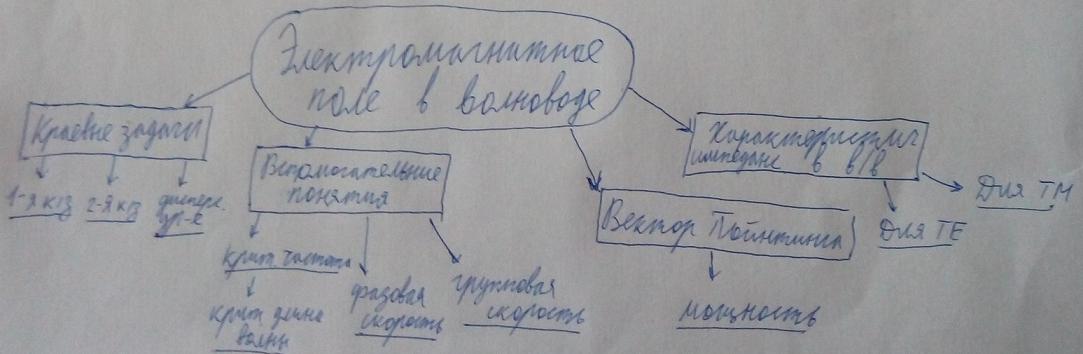 Электромагнитное
поле в волноводе
Краевые задачи
1-я к/з
2-я к/з
дисперс.
ур-я
Вспомогательные
понятия
крит. частота
крит длина
волны
фазовая
скорость
групповая
скорость
Вектор Пойнтинга
мощность
Характеристич
импеданс в в/в
Для ТЕ
Для ТМ